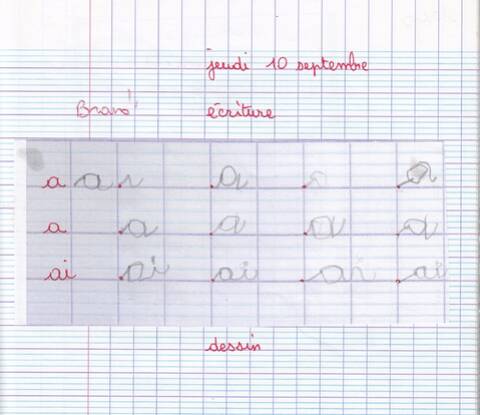 jeudi 10 septembre
Bravo! écriture
a a a
a a a a a
ai ai ai ai ai
dessin